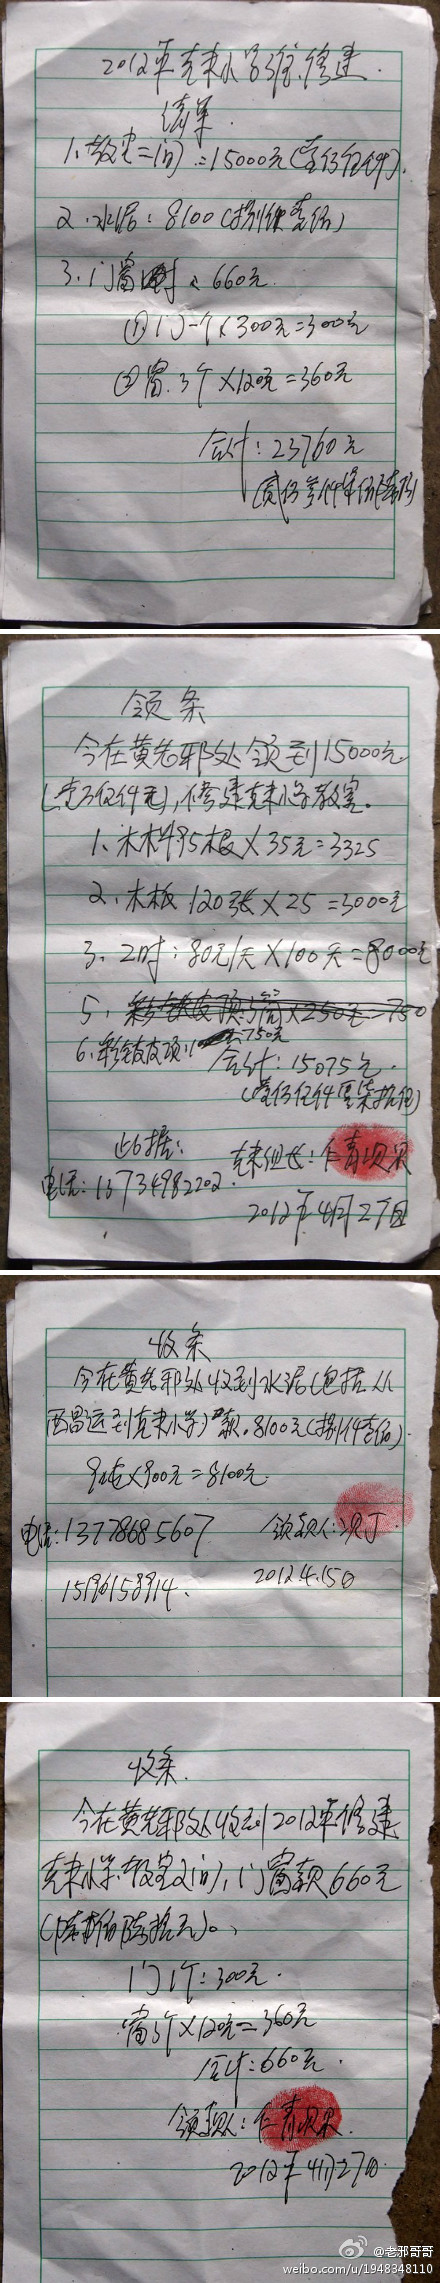 2012年克来小学维修建
结算
1.教室二间:15000元(壹仿伍仟)
2.水泥:8100(捌仟壹佰)
3.门窗 660元
①门一个×300元=300元
②窗.3个×120元=360元
合计:23760元
领条
今在黄老邪处领到15000元
(壹万伍仟元),修建克来小学教室。
1.木料95根×35元=3325
2.木板120张×25=3000元
3.工时:80元/天×100天=8000元
5.彩铁皮顶:3间×250元=750
6.彩铁皮顶: =750元
合计:15075元.
此据:
克来组长:仁青
电话:13734982202.
2012年4月27日
收条
今在黄老邪处收到水泥(包括从
西昌运到克来小学)款.8100元(捌仟壹佰).
9吨×900元=8100元.
电话:13778685607
领款人:次丁.
15196158914.
2012.4.15日
收条.
今在黄老邪处收到2012年修建
克来小学教室2间,门窗款660元
(陆佰陆拾元)。
门1个:300元.
窗3个×120元=360元
合计:660元.
领款人:仁青
2012年4月27日.
@老邪哥哥
weibo.com/u/1948348110